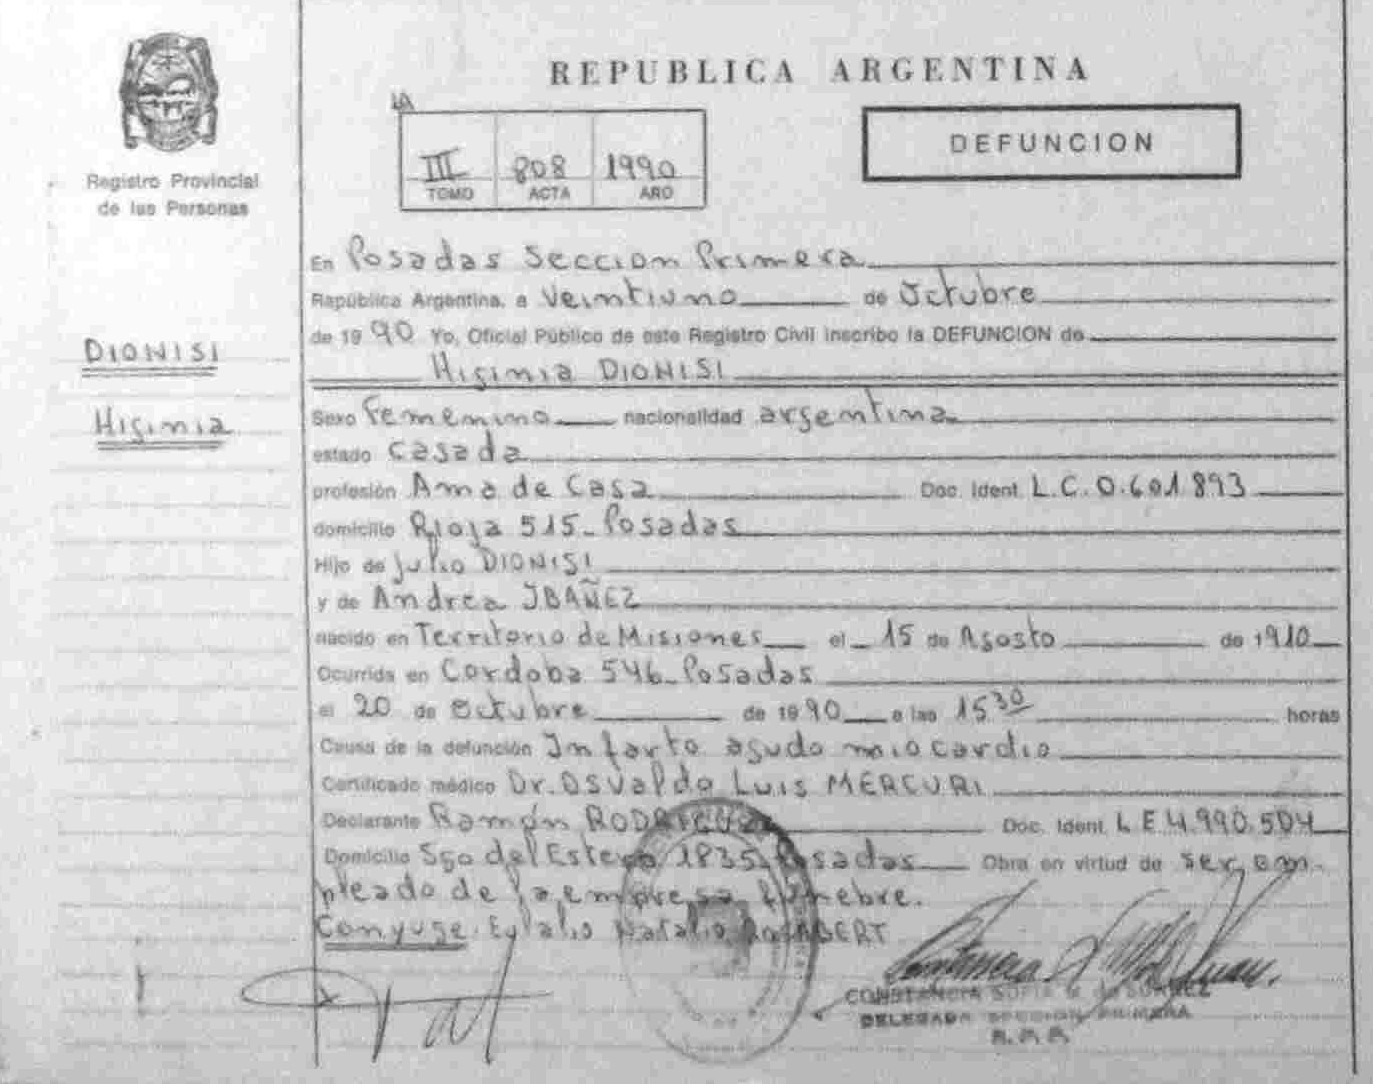 REPUBLICA ARGENTINA
III 808 1990
TOMO ACTA AÑO
DEFUNCION
Registro Provincial
de las Personas
DIONISI
Higinia
En Posadas Seccion Primera
República Argentina, a Veintiuno de Octubre
de 1990 Yo, Oficial Público de este Registro Civil inscribo la DEFUNCION de
Higinia DIONISI
Sexo Femenino nacionalidad argentina
estado Casada
profesión Ama de Casa Doc. Ident. L.C. 0.601.893
domicilio Rioja 515 - Posadas
Hijo de Julio DIONISI
y de Andrea IBAÑEZ
nacido en Territorio de Misiones el 15 de Agosto de 1910
Ocurrida en Cordoba 546 - Posadas
el 20 de Octubre de 1990 a las 15 30 horas
Causa de la defunción Infarto agudo miocardio
Certificado médico Dr. Osvaldo Luis MERCURI
Declarante Ramón RODRIGUEZ Doc. Ident. L E 4.990.504
Domicilio Sgo del Estero 1835 - Posadas Obra en virtud de ser em-
pleado de la empresa fúnebre.
Conyuge: Eulalio Natalio
CONSTANCIA SOFIA de SUAREZ
DELEGADA SECCION PRIMERA